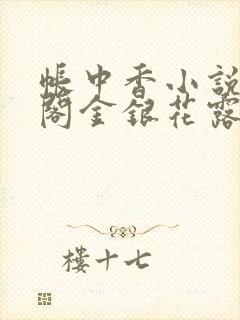 帳中香小說
閣金銀花露
樓十七